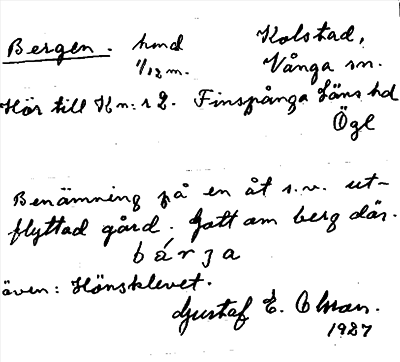 Bergen. hmd Kolstad,
1/12 m. Vånga sn.
Hör till Kn: r 2. Finspånga Läns hd
Ögl
Benämning på en åt s.v. ut-
flyttad gård. Gott om berg där.
bárʒa
även: Hönsklevet.
Gustaf E. Olsson.
1927